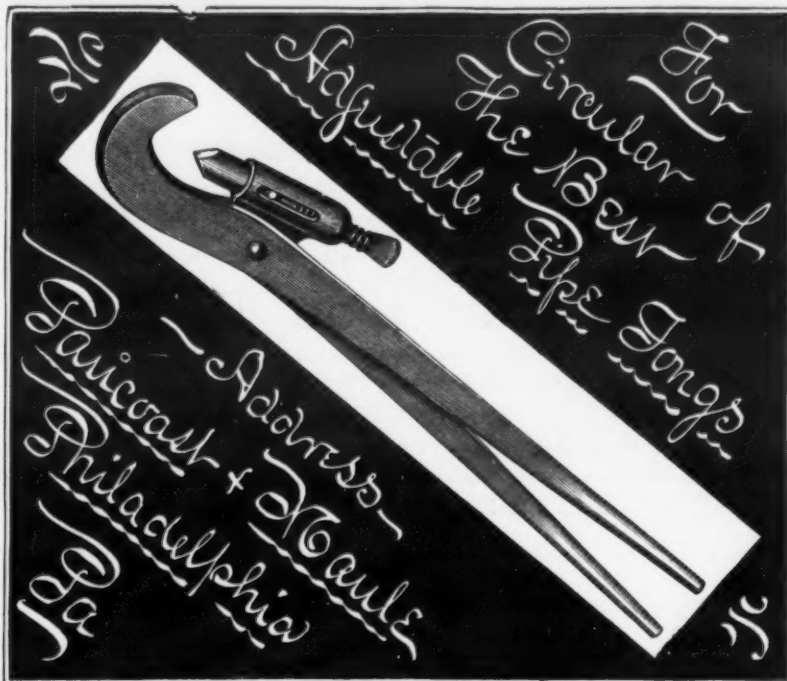 For
Circular of
The Best
Adjustable
Pipe Tongs
Address
Pancoast & Maule
Philadelphia
Pa